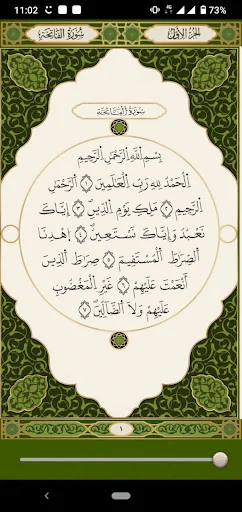 11:02 73%
الجزء الأول سُورَةُ الفَاتِحَةِ
سُورَةُ الْفَاتِحَةِ
بِسْمِ اللَّهِ الرَّحْمَٰنِ الرَّحِيمِ
الْحَمْدُ لِلهِ رَبِّ الْعَٰلَمِينَ ١ الرَّحْمَٰنِ
الرَّحِيمِ ٢ مَلِكِ يَوْمِ الدِّينِ ٣ إِيَّاكَ
نَعْبُدُ وَإِيَّاكَ نَسْتَعِينُ ٤ اِهْدِنَا
الصِّرَٰطَ الْمُسْتَقِيمَ ٥ صِرَٰطَ الذِينَ
أَنْعَمْتَ عَلَيْهِمْ ٦ غَيْرِ الْمَغْضُوبِ
عَلَيْهِمْ وَلَا الضَّالِّينَ ٧
١